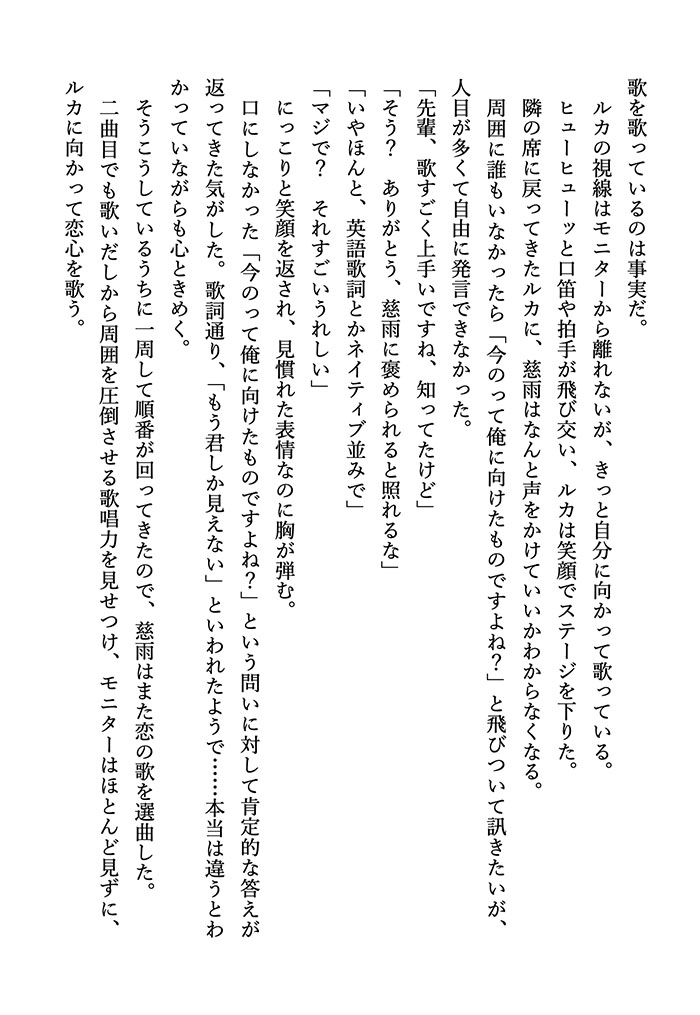 歌を歌っているのは事実だ。
　ルカの視線はモニターから離れないが、きっと自分に向かって歌っている。
　ヒューヒューッと口笛や拍手が飛び交い、ルカは笑顔でステージを下りた。
　隣の席に戻ってきたルカに、慈雨はなんと声をかけていいかわからなくなる。
　周囲に誰もいなかったら「今のって俺に向けたものですよね？」と飛びついて訊きたいが、
人目が多くて自由に発言できなかった。
「先輩、歌すごく上手いですね、知ってたけど」
「そう？　ありがとう、慈雨に褒められると照れるな」
「いやほんと、英語歌詞とかネイティブ並みで」
「マジで？　それすごいうれしい」
　にっこりと笑顔を返され、見慣れた表情なのに胸が弾む。
　口にしなかった「今のって俺に向けたものですよね？」という問いに対して肯定的な答えが
返ってきた気がした。歌詞通り、「もう君しか見えない」といわれたようで……本当は違うとわ
かっていながらも心ときめく。
　そうこうしているうちに一周して順番が回ってきたので、慈雨はまた恋の歌を選曲した。
　二曲目でも歌いだしから周囲を圧倒させる歌唱力を見せつけ、モニターはほとんど見ずに、
ルカに向かって恋心を歌う。